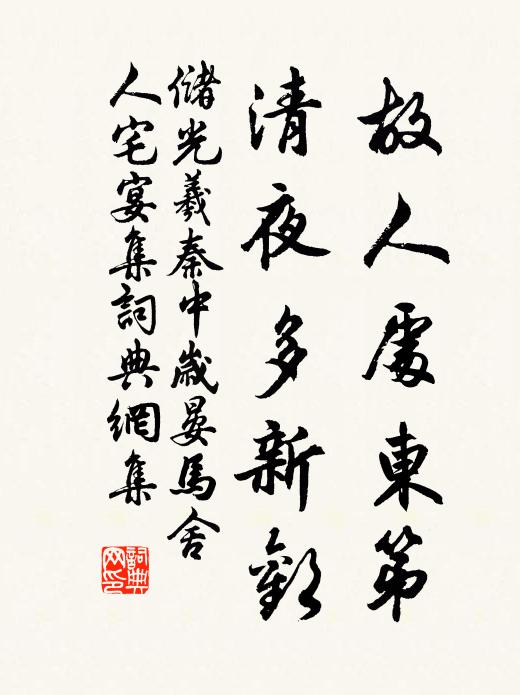 故人處東第
清夜多新歡
儲光羲秦中歲晏馬舍
人宅宴集詞典網集
詞典网印